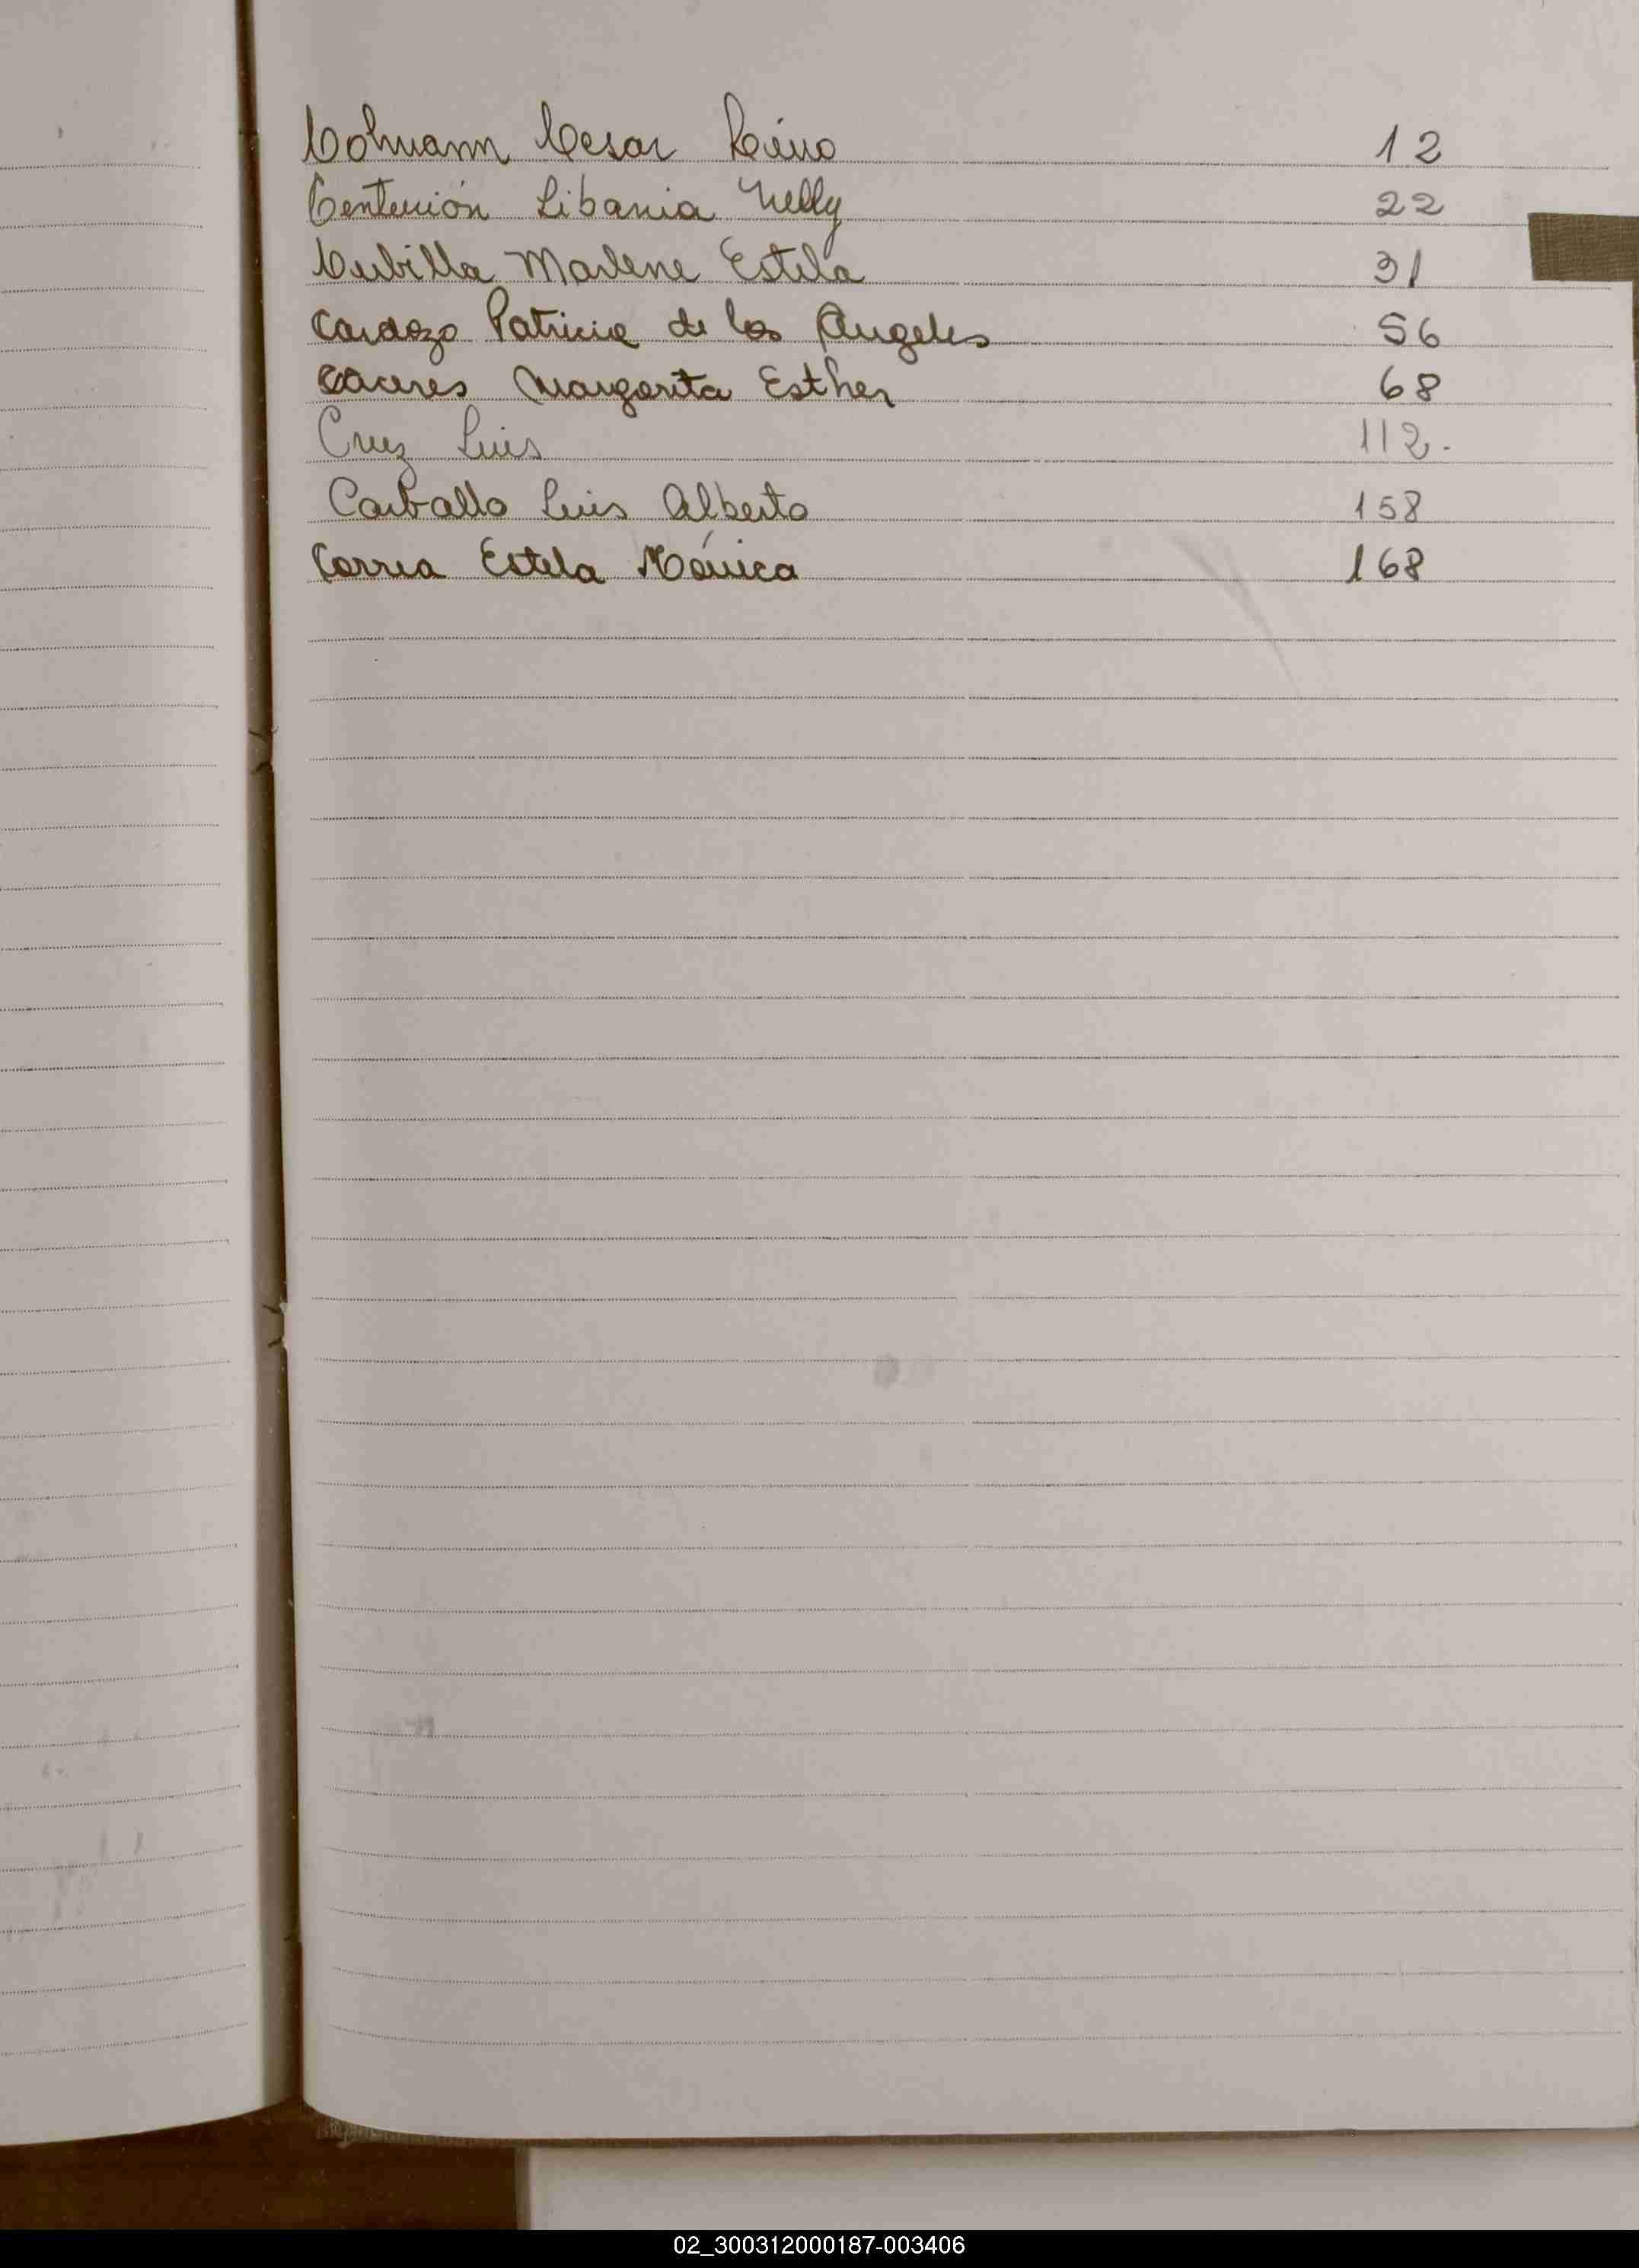 Colmann Cesar Reino 12
Centurión Libania Nelly 22
Cubilla Marlene Estela 31
Cardozo Patricia de los Angeles 56
Caceres Margarita Esther 68
Cruz Luis 112.
Carballo Luis Alberto 158
Correa Estela Mónica 168
02_300312000187-003406